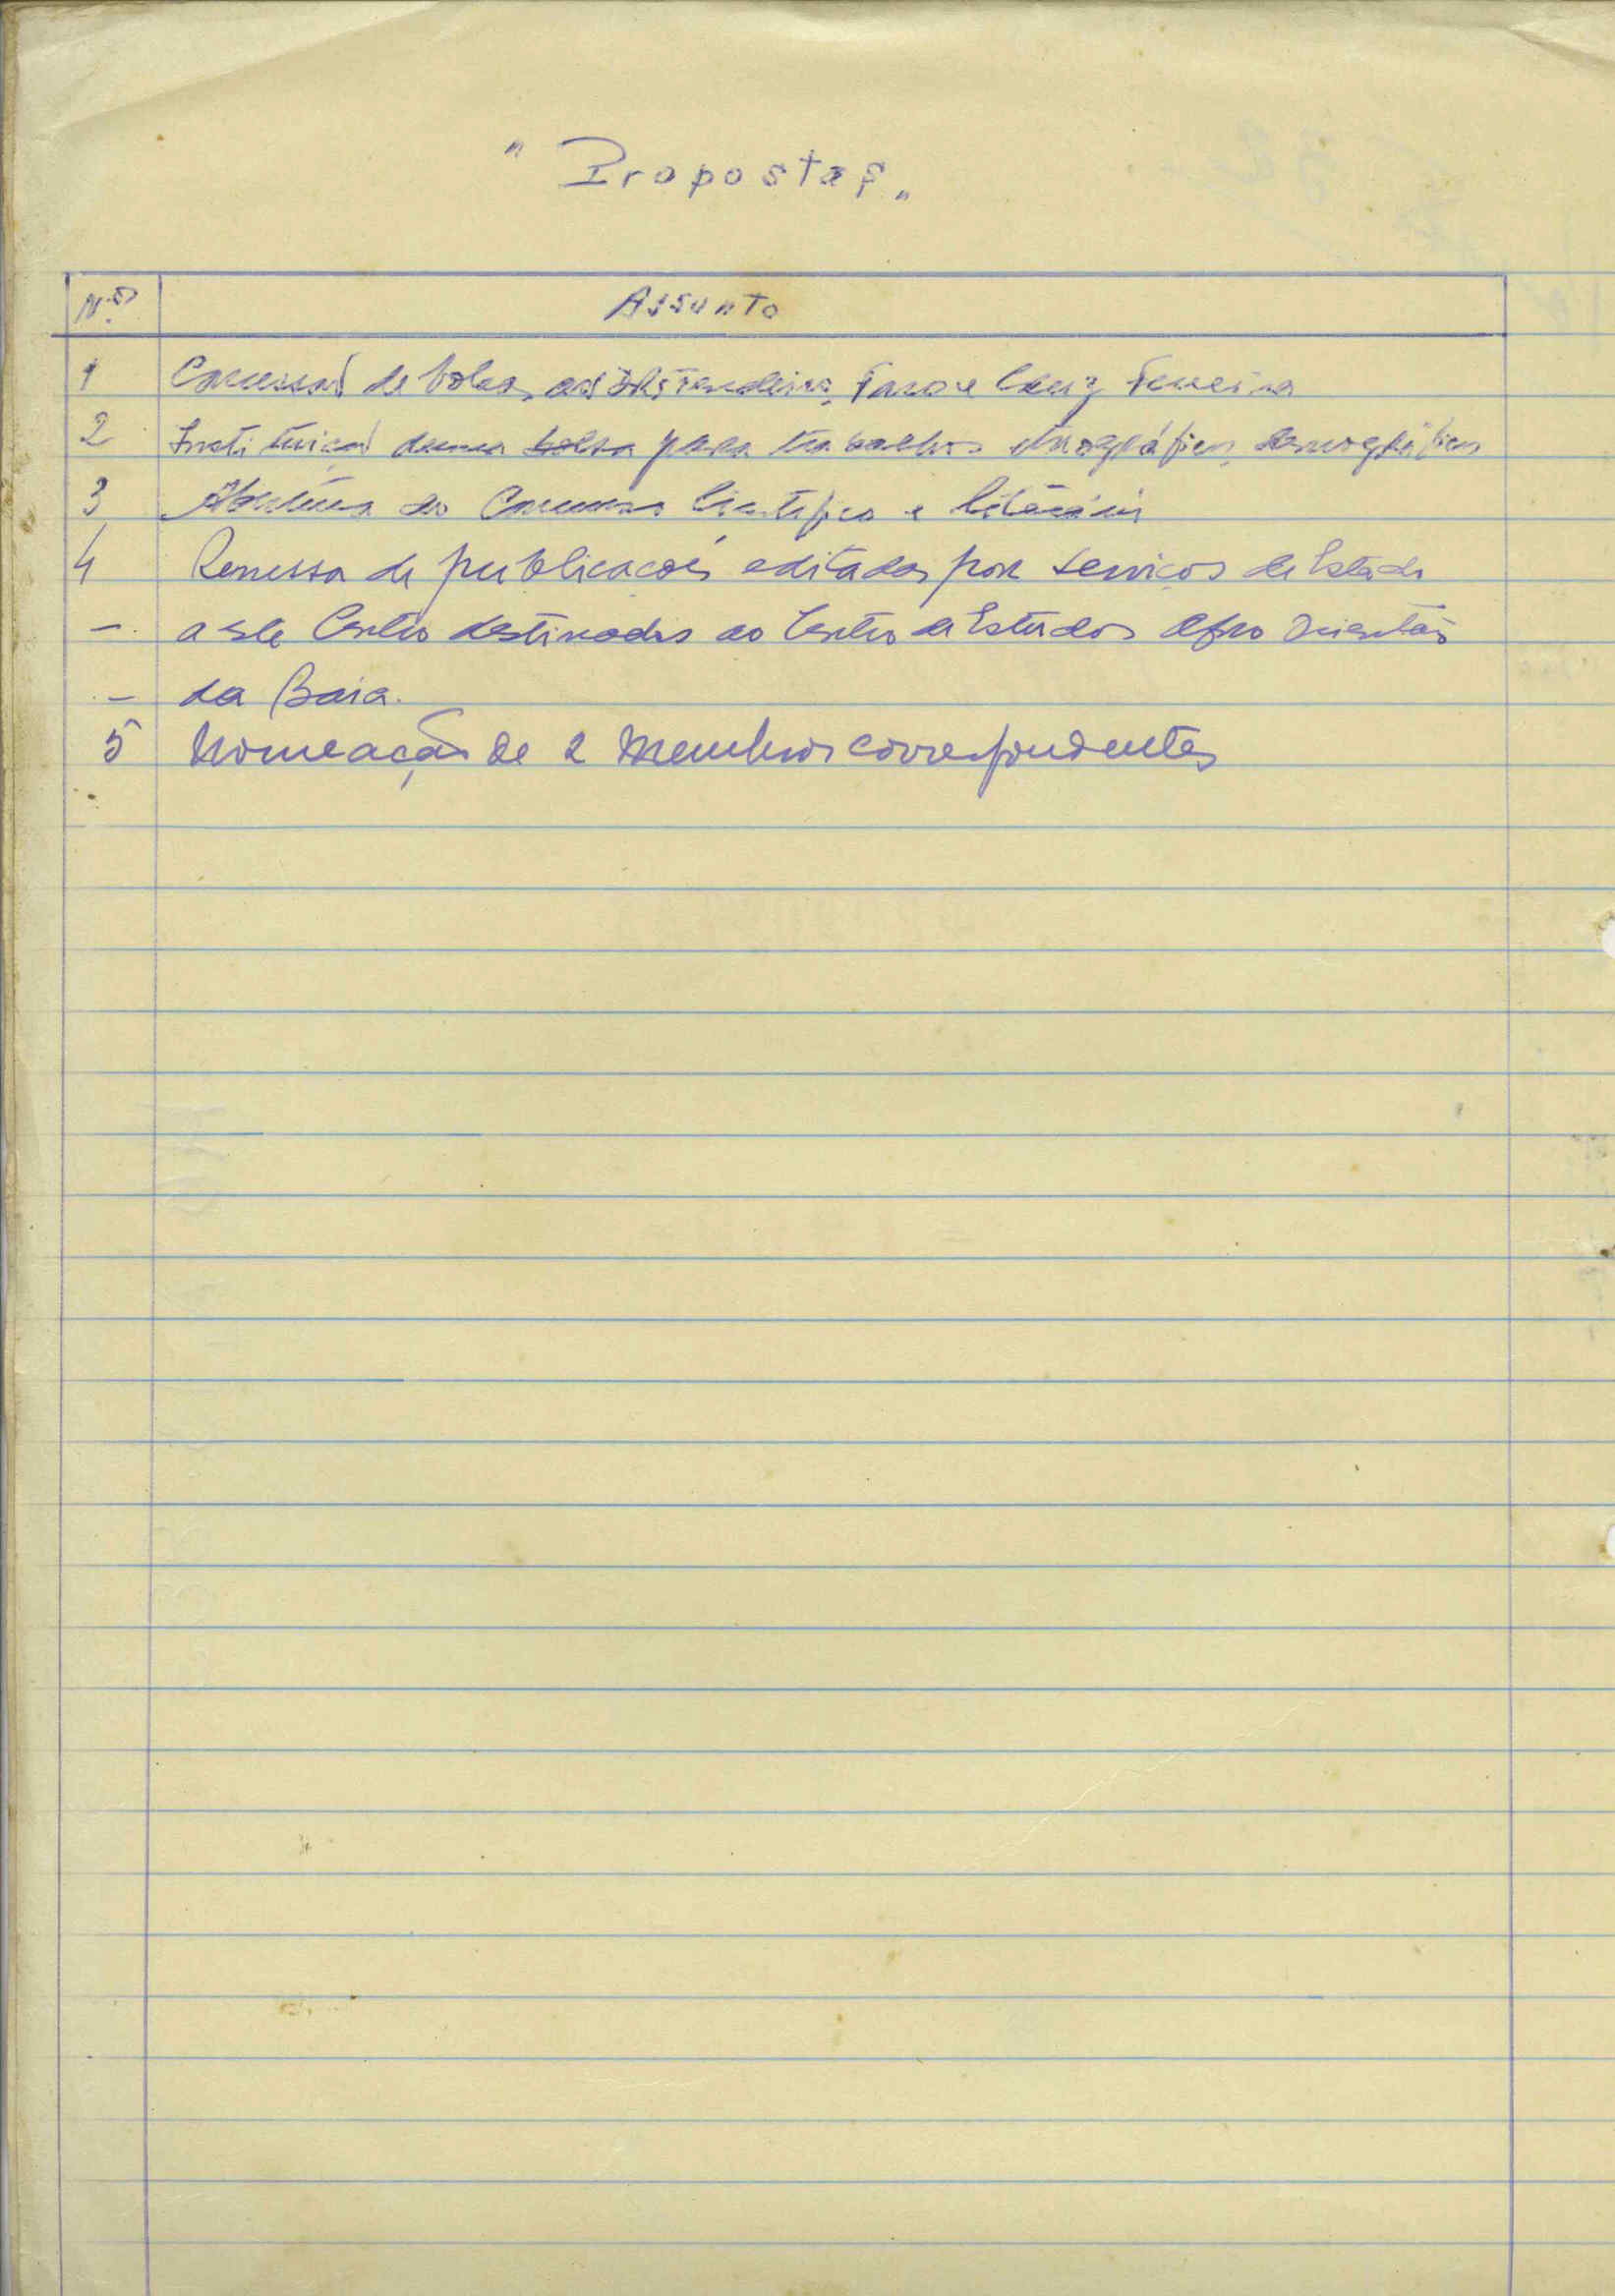 "Propostas"
N.º Assunto
1 Concessão de bolsas aos Drs Tendeiro, e Cruz Ferreira
2 Instituição duma bolsa para trabalhos etnográficos, demográficos
3 Abertura do Concurso Cientifico e Literário
4 Remessa de publicações editadas por serviços de Estado
- a este Centro destinadas ao Centro de Estudos Afro Orientais
- da Baía.
5 Nomeação de 2 Membros correspondentes